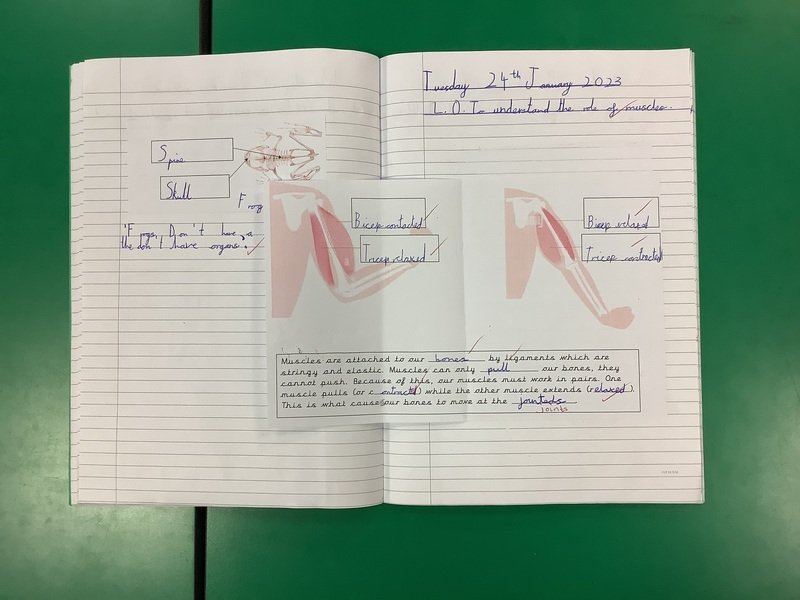 Spine
Skull
Frog
Frogs, Don't have a
the don't have organs.
Tuesday 24th January 2023
L.O. To understand the role of muscles.
Bicep contacted
Tricep relaxed
Bicep relaxed
Tricep contracted
Muscles are attached to our bones by ligaments which are
stringy and elastic. Muscles can only pull our bones, they
cannot push. Because of this, our muscles must work in pairs. One
muscle pulls (or contracts) while the other muscle extends (relaxed).
This is what causes our bones to move at the jointeds
joints